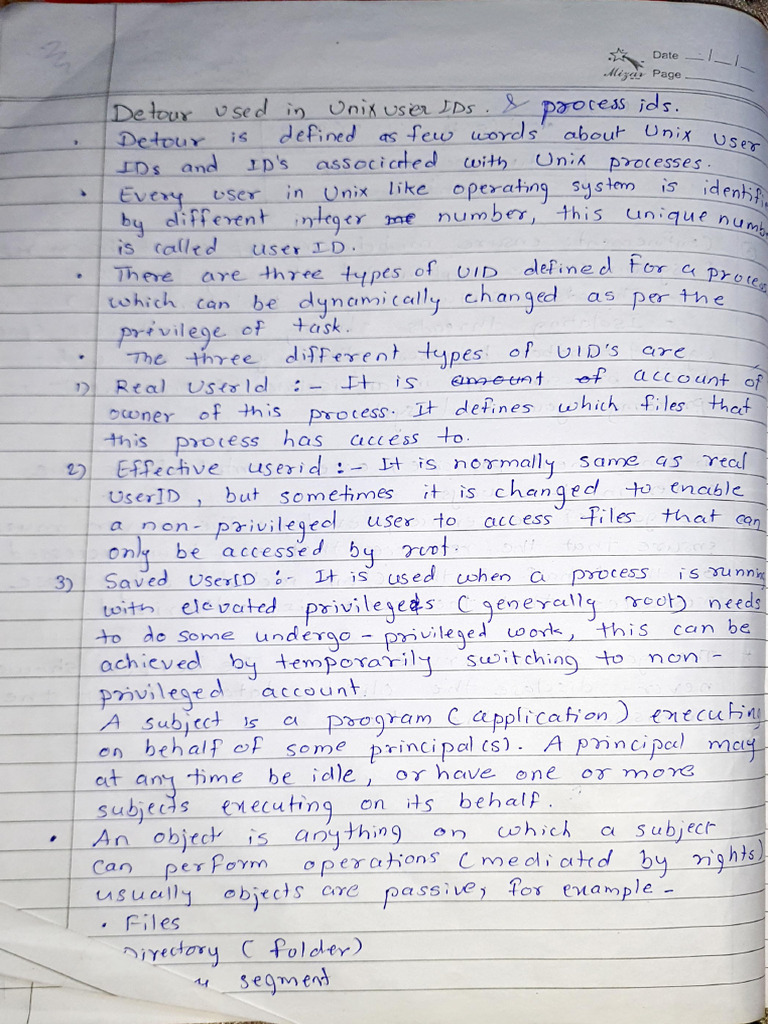 Mizar
Date __/__/__
Page ______
Detour used in Unix user IDs. & process ids.
• Detour is defined as few words about Unix user
IDs and ID's associcted with Unix processes.
• Every user in Unix like operating system is identifi
by different integer me number, this unique numb
is called user ID.
• There are three types of UID defined for a proces
which can be dynamically changed as per the
privilege of task.
• The three different types of UID's are
1) Real UserId :- It is amount of account of
owner of this process. It defines which files that
this process has access to.
2) Effective userid :- It is normally same as real
UserID, but sometimes it is changed to enable
a non-privileged user to access files that can
only be accessed by root.
3) Saved UserID :- It is used when a process is runnin
with elevated privileges (generally root) needs
to do some undergo-privileged work, this can be
achieved by temporarily switching to non-
privileged account.
A subject is a program (application) executing
on behalf of some principal(s). A principal may
at any time be idle, or have one or more
subjects executing on its behalf.
• An object is anything on which a subject
can perform operations (mediated by rights)
usually objects are passive, for example -
• Files
Directory (folder)
segment